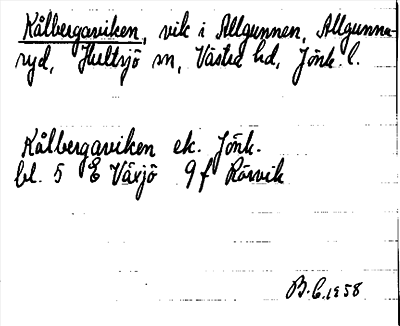 Kålbergaviken, vik i Allgunnen, Allgunna-
ryd, Hultsjö sn, Västra hd, Jönk. l.
Kålbergaviken ek. Jönk.
bl. 5 E Växjö 9 f Rörvik
B. C. 1958